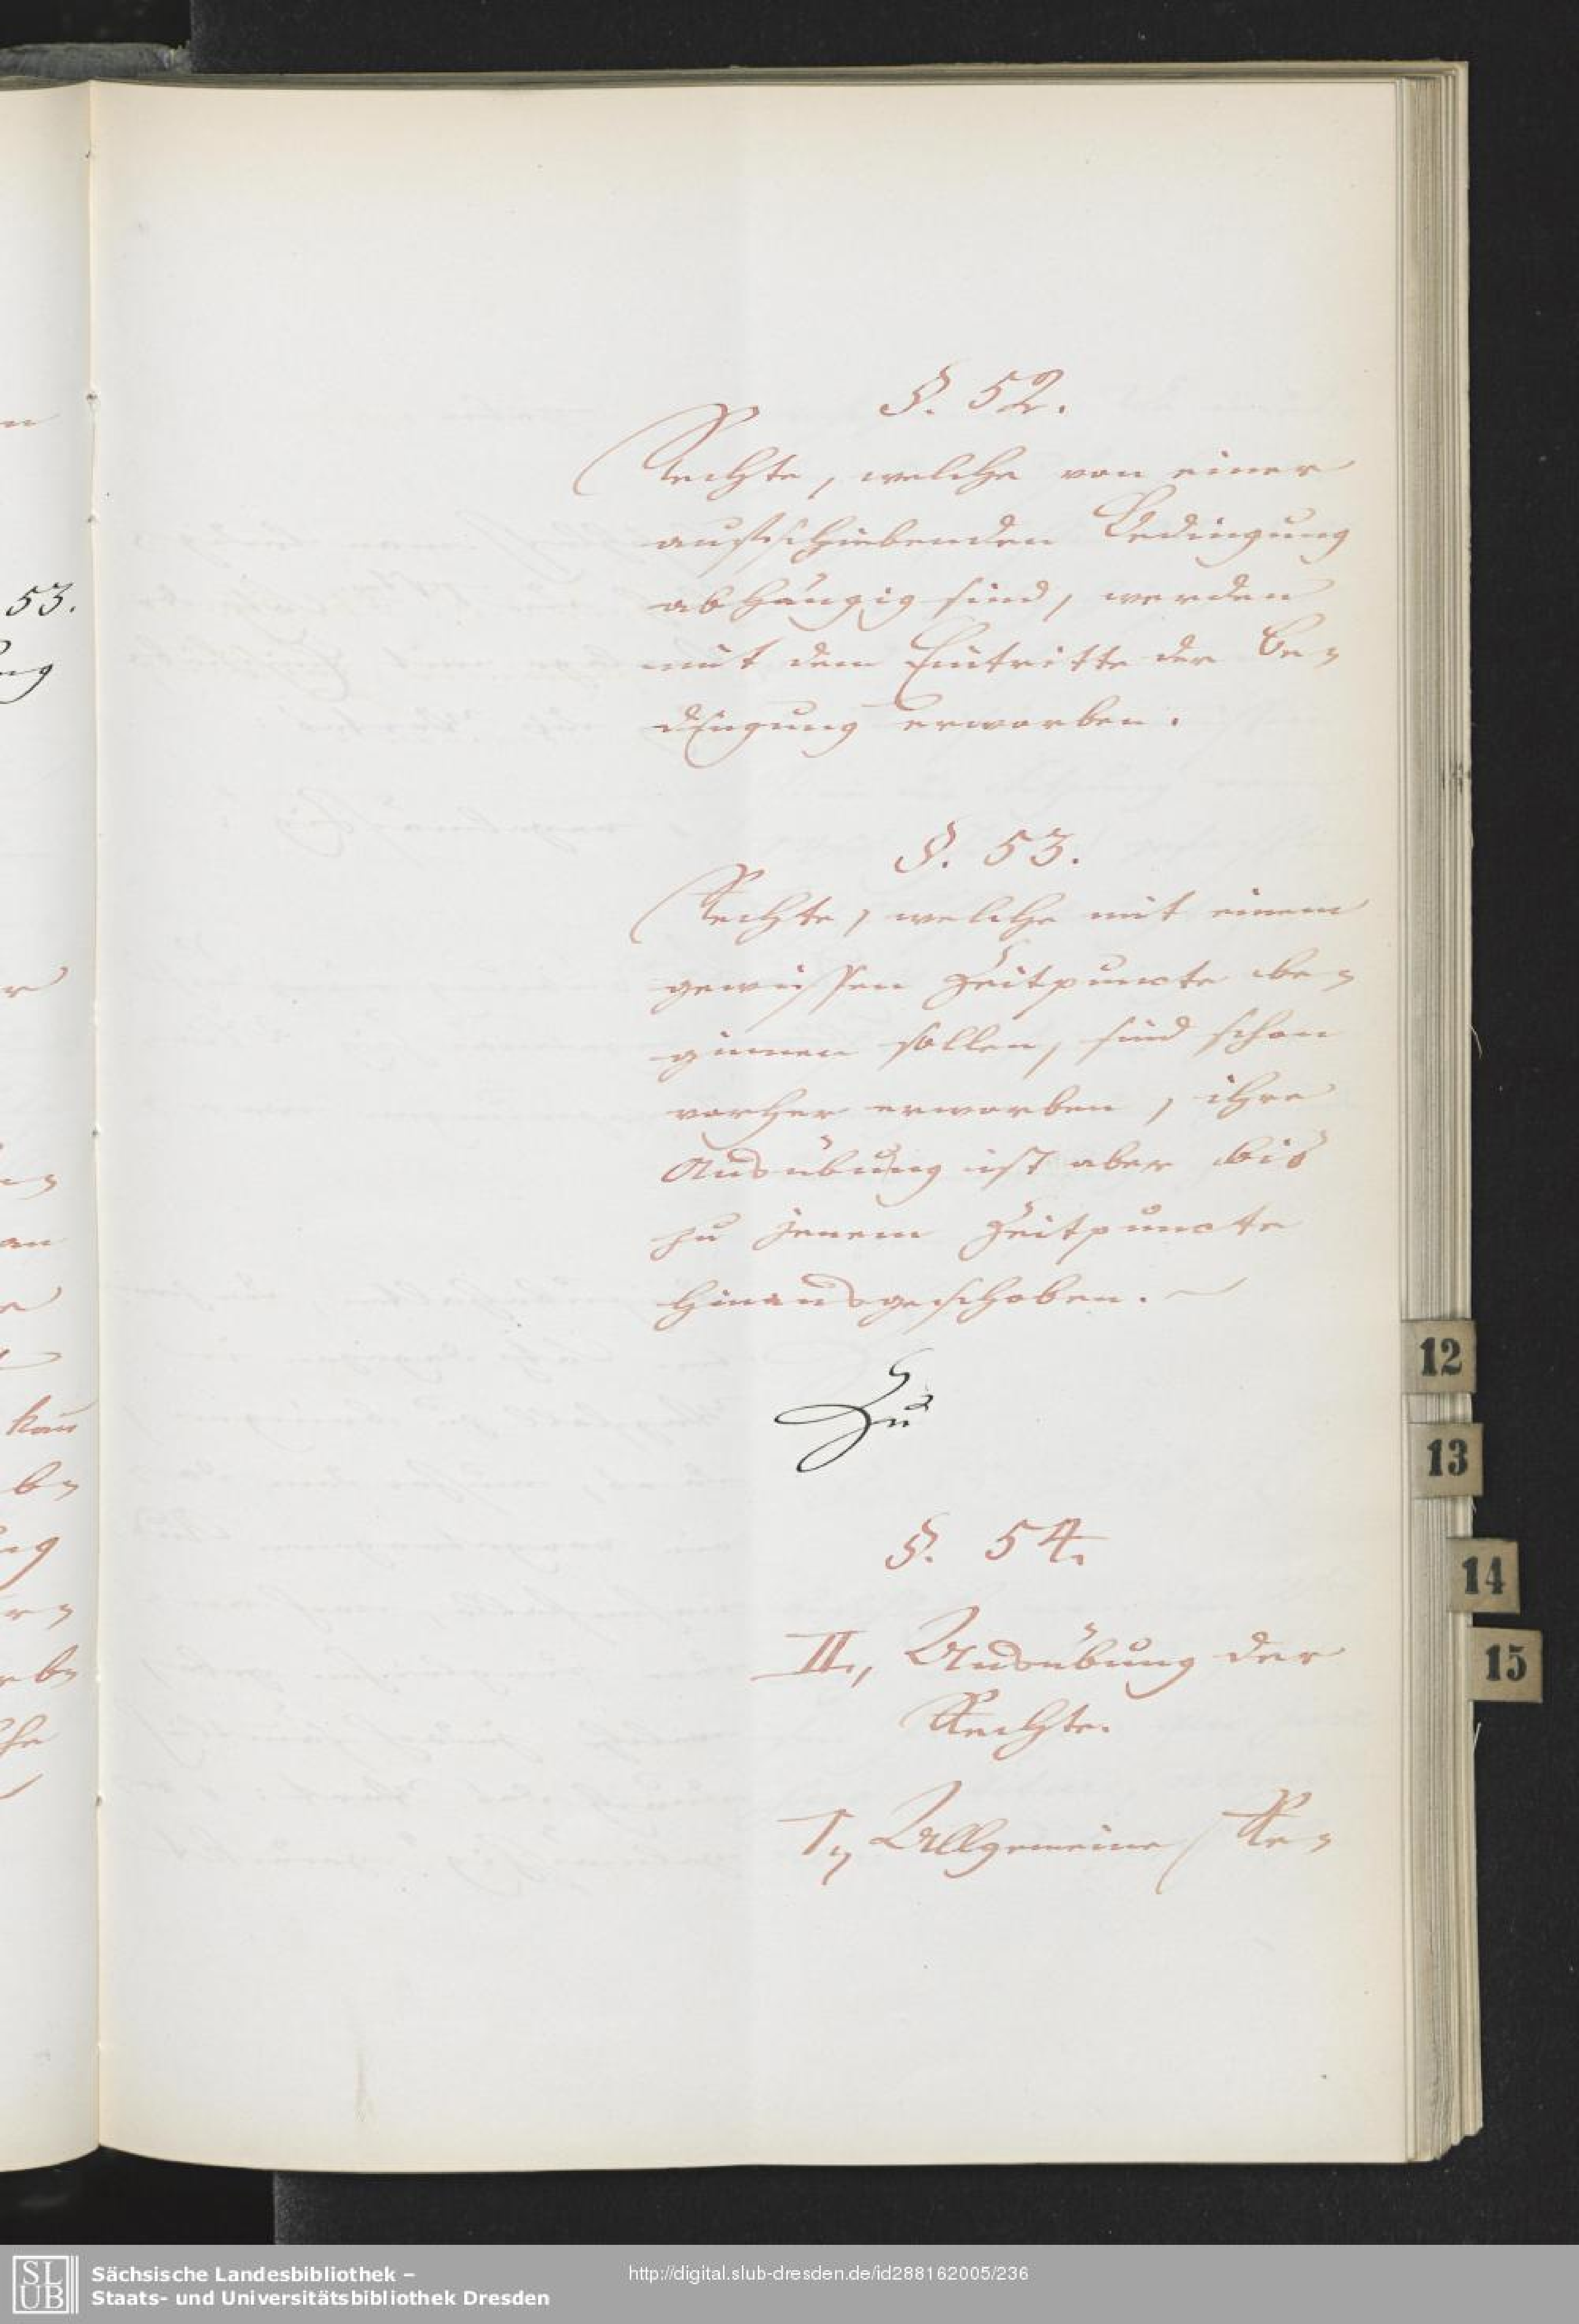 §. 52.
Rechte, welche von einer
aufschiebenden Bedingung
abhängig sind, werden
mit dem Eintritte der Be-
dingung erworben.
§. 53.
Rechte, welche mit einem
gewissen Zeitpuncte be-
ginnen sollen, sind schon
vorher erworben, ihre
Ausübung ist aber bis
zu jenem Zeitpuncte
hinausgeschoben.
Zu
§. 54.
II., Ausübung der
Rechte.
1, Allgemeine Re-
53.
kan
12
13
14
15
SLUB
Sächsische Landesbibliothek –
Staats- und Universitätsbibliothek Dresden
http://digital.slub-dresden.de/id288162005/236